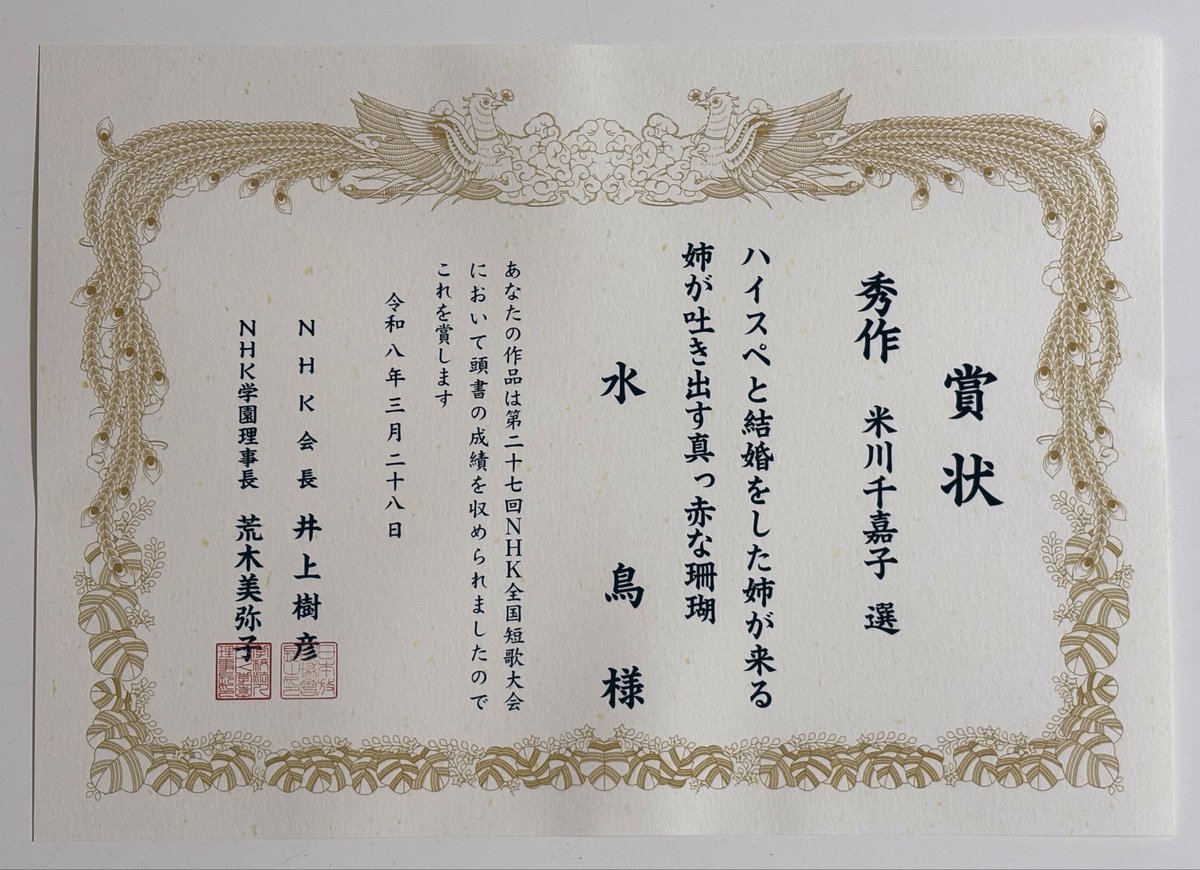 賞状
秀作 米川千嘉子 選
ハイスペと結婚をした姉が来る
姉が吐き出す真っ赤な珊瑚
水鳥様
あなたの作品は第二十七回NHK全国短歌大会
において頭書の成績を収められましたので
これを賞します
令和八年三月二十八日
NHK会長 井上樹彦
NHK学園理事長 荒木美弥子